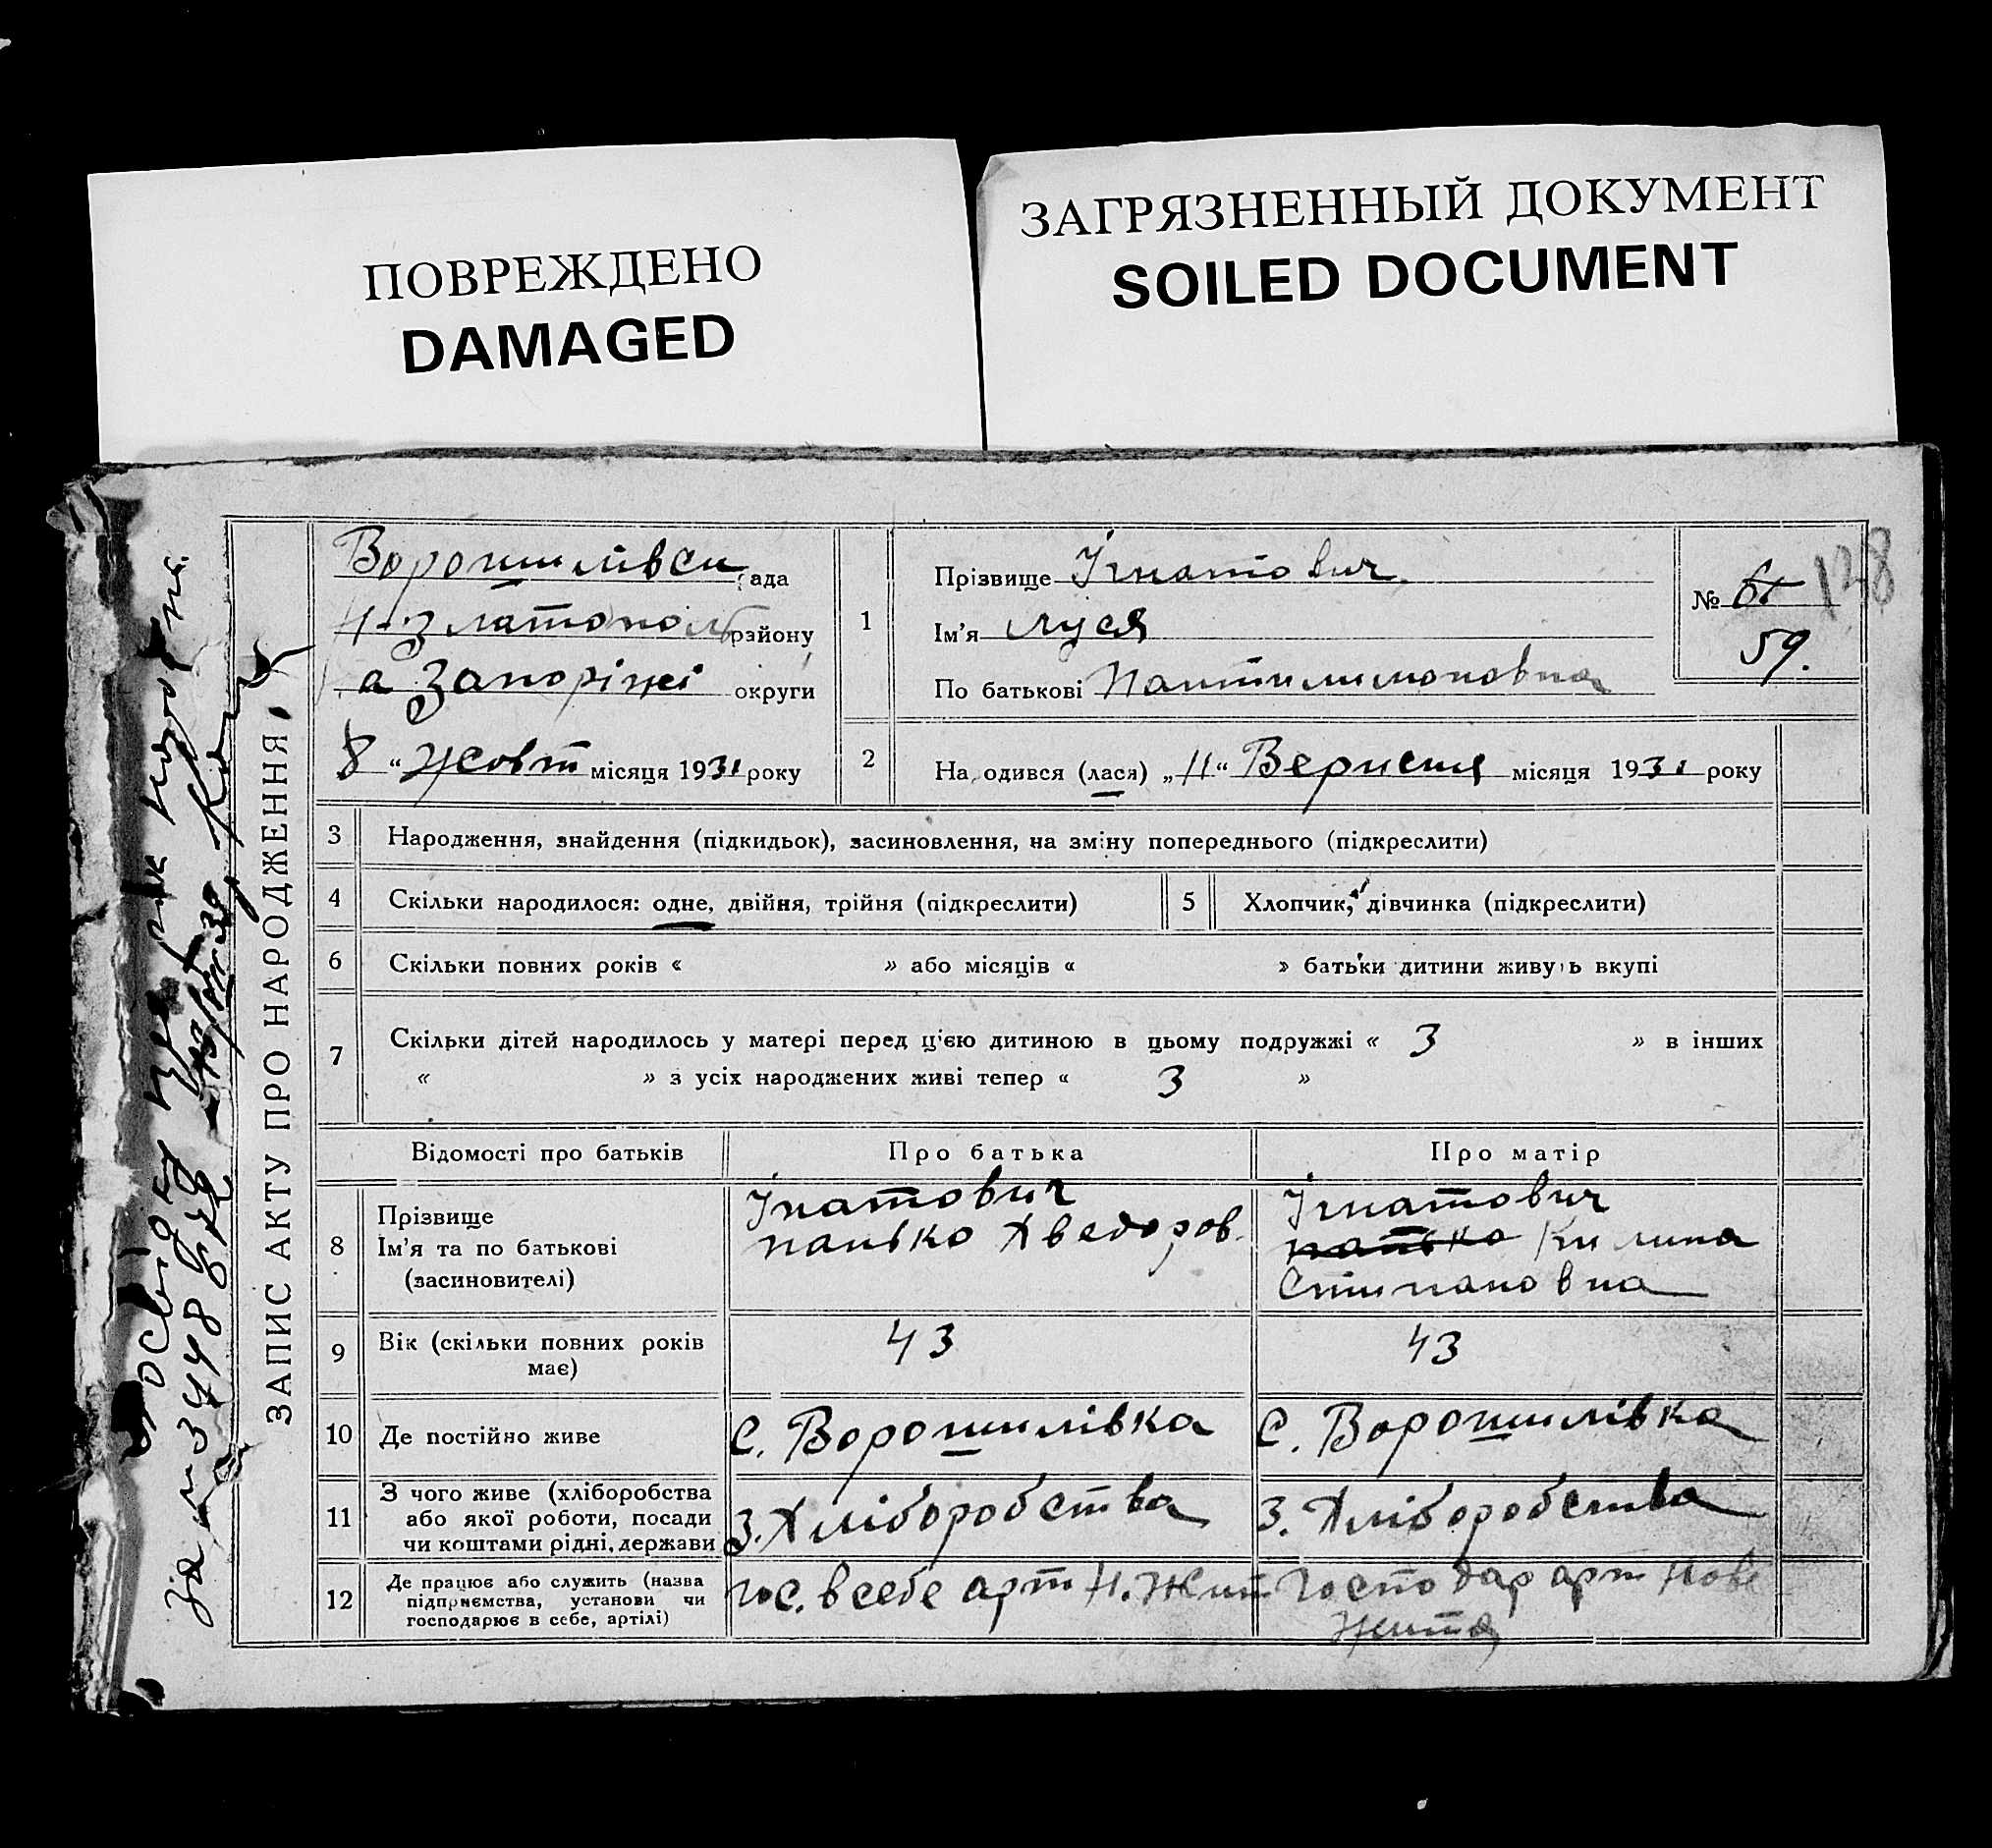 ПОВРЕЖДЕНО
DAMAGED
ЗАГРЯЗНЕННЫЙ ДОКУМЕНТ
SOILED DOCUMENT
128
ЗАПИС АКТУ ПРО НАРОДЖЕННЯ.
Ворошилівск рада
Н-Златополь району
а Запоріжі округи
8 " Жовт місяця 1931 року
1
Прізвище Ігнатович
Ім'я Луся
По батькові Пантилимоновна
№ 61
59.
2
На одився (лася) „11" Вересня місяця 1931 року
3 Народження, знайдення (підкидьок), засиновлення, на зміну попереднього (підкреслити)
4 Скільки народилося: одне, двійня, трійня (підкреслити)
5 Хлопчик, дівчинка (підкреслити)
6 Скільки повних років « » або місяців « » батьки дитини живуь вкупі
7 Скільки дітей народилось у матері перед ц'єю дитиною в цьому подружжі « 3 » в інших
« » з усіх народжених живі тепер « 3 »
Відомості про батьків Про батька Про матір
8 Прізвище
Ім'я та по батькові
(засиновителі)
Ігнатович
панько Хведоров.
Ігнатович
панько Килина
Степановна
9 Вік (скільки повних років
має)
43
43
10 Де постійно живе
с. Ворошилівка
с. Ворошилівка
11 З чого живе (хліборобства
або якої роботи, посади
чи коштами рідні, держави
З. Хліборобства
З. Хліборобства
12 Де працює або служить (назва
підприємства, установи чи
господарює в себе, артілі)
гос. в себе арт Н. Жит
Господар арт Нове
Жита